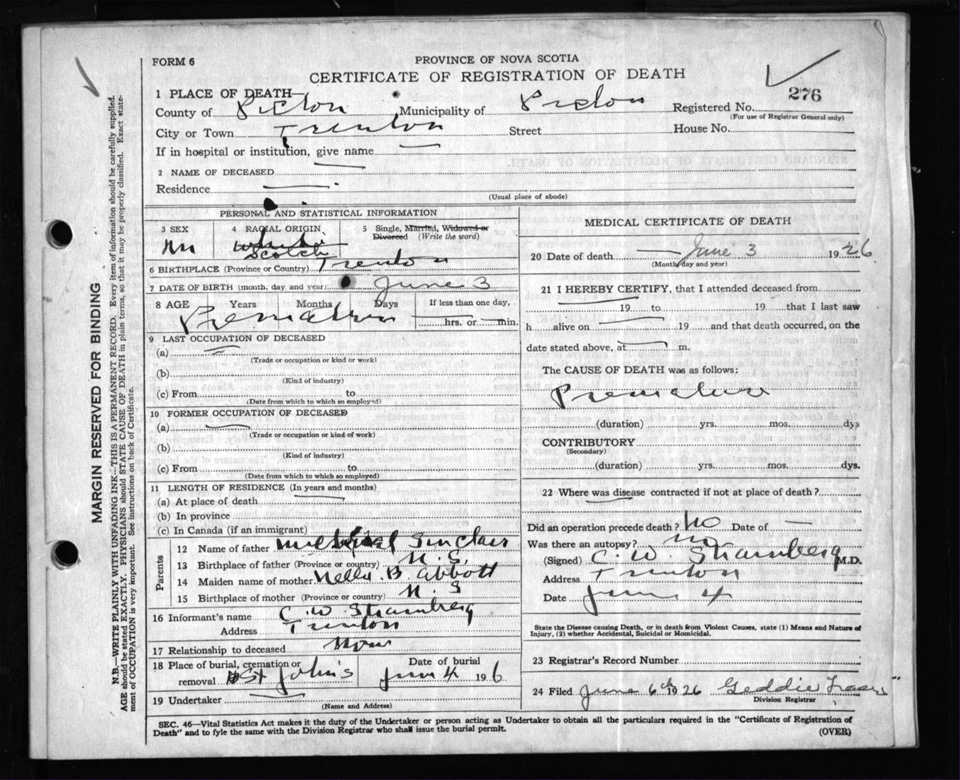 FORM 6
PROVINCE OF NOVA SCOTIA
CERTIFICATE OF REGISTRATION OF DEATH
276
1 PLACE OF DEATH
County of Pictou Municipality of Pictou Registered No.
(For use of Registrar General only)
City or Town Trenton Street House No.
If in hospital or institution, give name —
2 NAME OF DECEASED —
Residence —
(Usual place of abode)
PERSONAL AND STATISTICAL INFORMATION
3 SEX 4 RACIAL ORIGIN 5 Single, Married, Widowed or
Divorced (Write the word)
M
Scotch
6 BIRTHPLACE (Province or Country) Trenton
7 DATE OF BIRTH (month, day, and year) June 3
8 AGE Years Months Days If less than one day,
Premature — hrs. or — min.
9 LAST OCCUPATION OF DECEASED
(a) —
(Trade or occupation or kind or work)
(b)
(Kind of industry)
(c) From to
(Date from which to which so employed)
10 FORMER OCCUPATION OF DECEASED
(a) —
(Trade or occupation or kind of work)
(b)
(Kind of industry)
(c) From to
(Date from which to which so employed)
11 LENGTH OF RESIDENCE (In years and months)
(a) At place of death —
(b) In province
(c) In Canada (if an immigrant)
Parents
12 Name of father Sinclair
13 Birthplace of father (Province or country) N.S.
14 Maiden name of mother Nella B. Abbott
15 Birthplace of mother (Province or country) N.S
16 Informant's name C. W. Stramberg
Address Trenton
17 Relationship to deceased None
18 Place of burial, cremation or Date of burial
removal St John's June 4 1926
19 Undertaker —
(Name and Address)
MEDICAL CERTIFICATE OF DEATH
20 Date of death June 3 1926
(Month, day and year)
21 I HEREBY CERTIFY, that I attended deceased from
— 19 to 19 that I last saw
h alive on — 19 and that death occurred, on the
date stated above, at — m.
The CAUSE OF DEATH was as follows:
Premature
(duration) yrs. mos. dys
CONTRIBUTORY
(Secondary)
(duration) yrs. mos. dys.
22 Where was disease contracted if not at place of death?
—
Did an operation precede death? No Date of —
Was there an autopsy? no
(Signed) C. W. Stramberg M.D.
Address Trenton
Date June 4
State the Disease causing Death, or in Death from Violent Causes, state (1) Means and Nature of
Injury, (2) whether Accidental, Suicidal or Homicidal.
23 Registrar's Record Number
24 Filed June 6th 1926 Geddie Fraser
Division Registrar
SEC. 46—Vital Statistics Act makes it the duty of the Undertaker or person acting as Undertaker to obtain all the particulars required in the "Certificate of Registration of
Death" and to fyle the same with the Division Registrar who shall issue the burial permit.
(OVER)
MARGIN RESERVED FOR BINDING
N.B.—WRITE PLAINLY WITH UNFADING INK—THIS IS A PERMANENT RECORD. Every item of information should be carefully supplied.
AGE should be stated EXACTLY. PHYSICIANS should STATE CAUSE OF DEATH in plain terms, so that it may be properly classified. Exact state-
ment of OCCUPATION is very important. See instructions on back of Certificate.